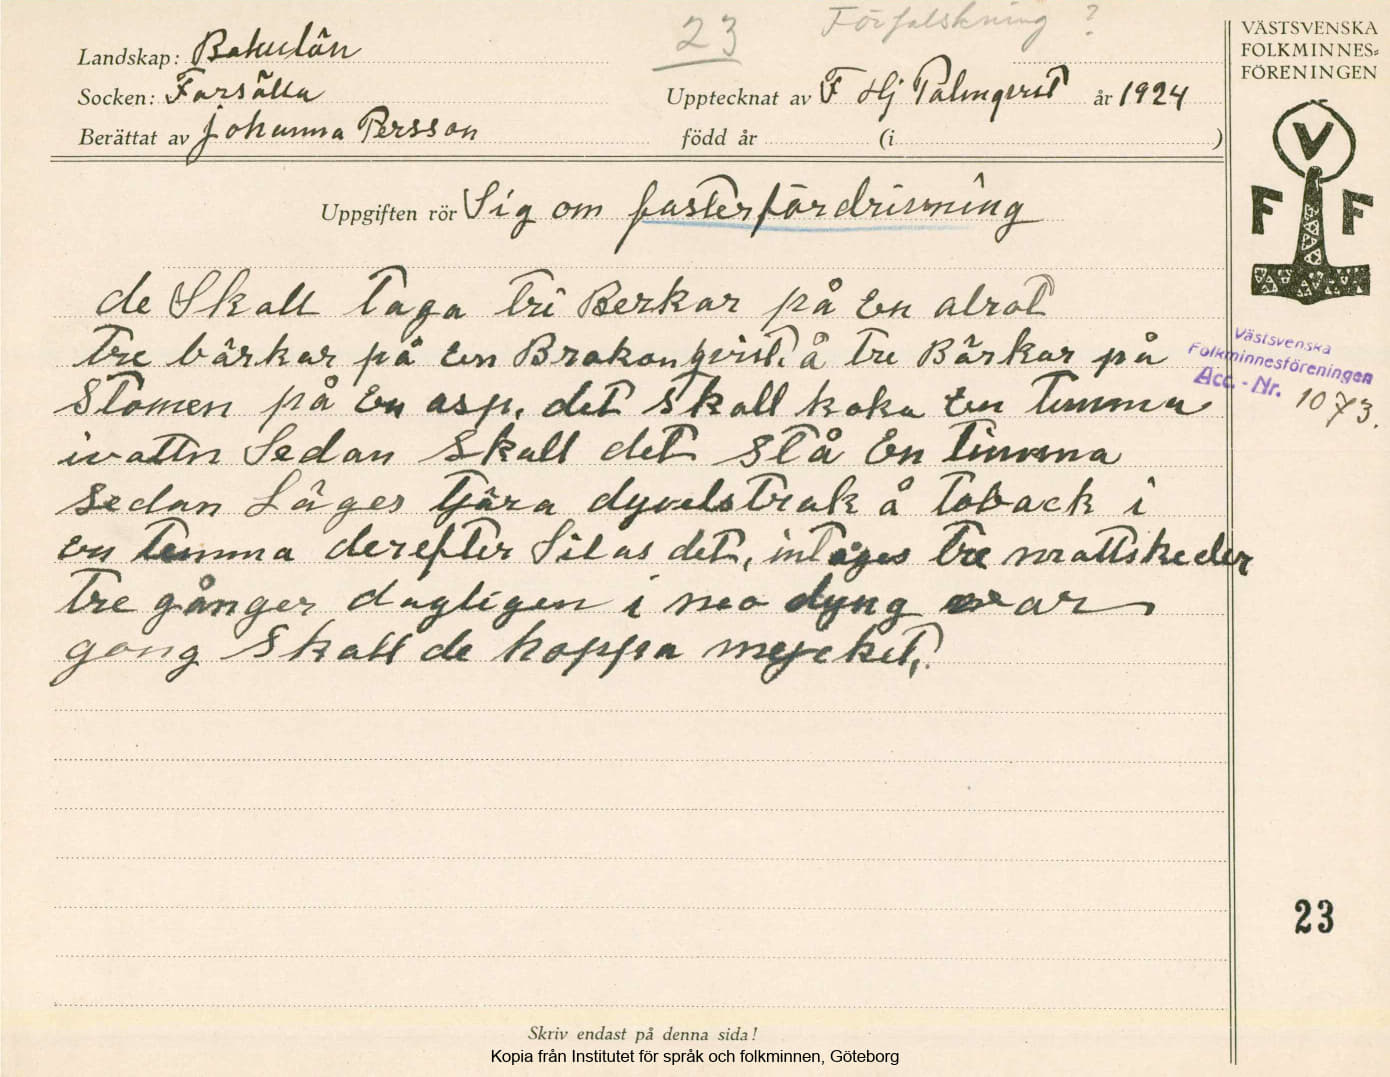 23
Förfalskning ?
VÄSTSVENSKA
FOLKMINNES-
FÖRENINGEN
Landskap: Bohuslän
Socken: Forsälla
Upptecknat av F Hj Palmqvist år 1924
Berättat av Johanna Persson
född år (i )
V
F F
Uppgiften rör Sig om fosterfördrivning
de Skall taga tri Berkar på En alrot
tre bärkar på en Brakonqvist. å tre Bärkar på
Stomen på En asp. det skall koka En timma
ivattn Sedan skall det stå En timma
sedan Läges tjära dyvelstrak å toback i
en timma derefter Silas det, intages tre mattskeder
tre gånger dagligen i nio dyng var
gong skall de hoppa mycket.
Västsvenska
Folkminnesföreningen
Acc.-Nr. 1073.
23
Skriv endast på denna sida!
Kopia från Institutet för språk och folkminnen, Göteborg